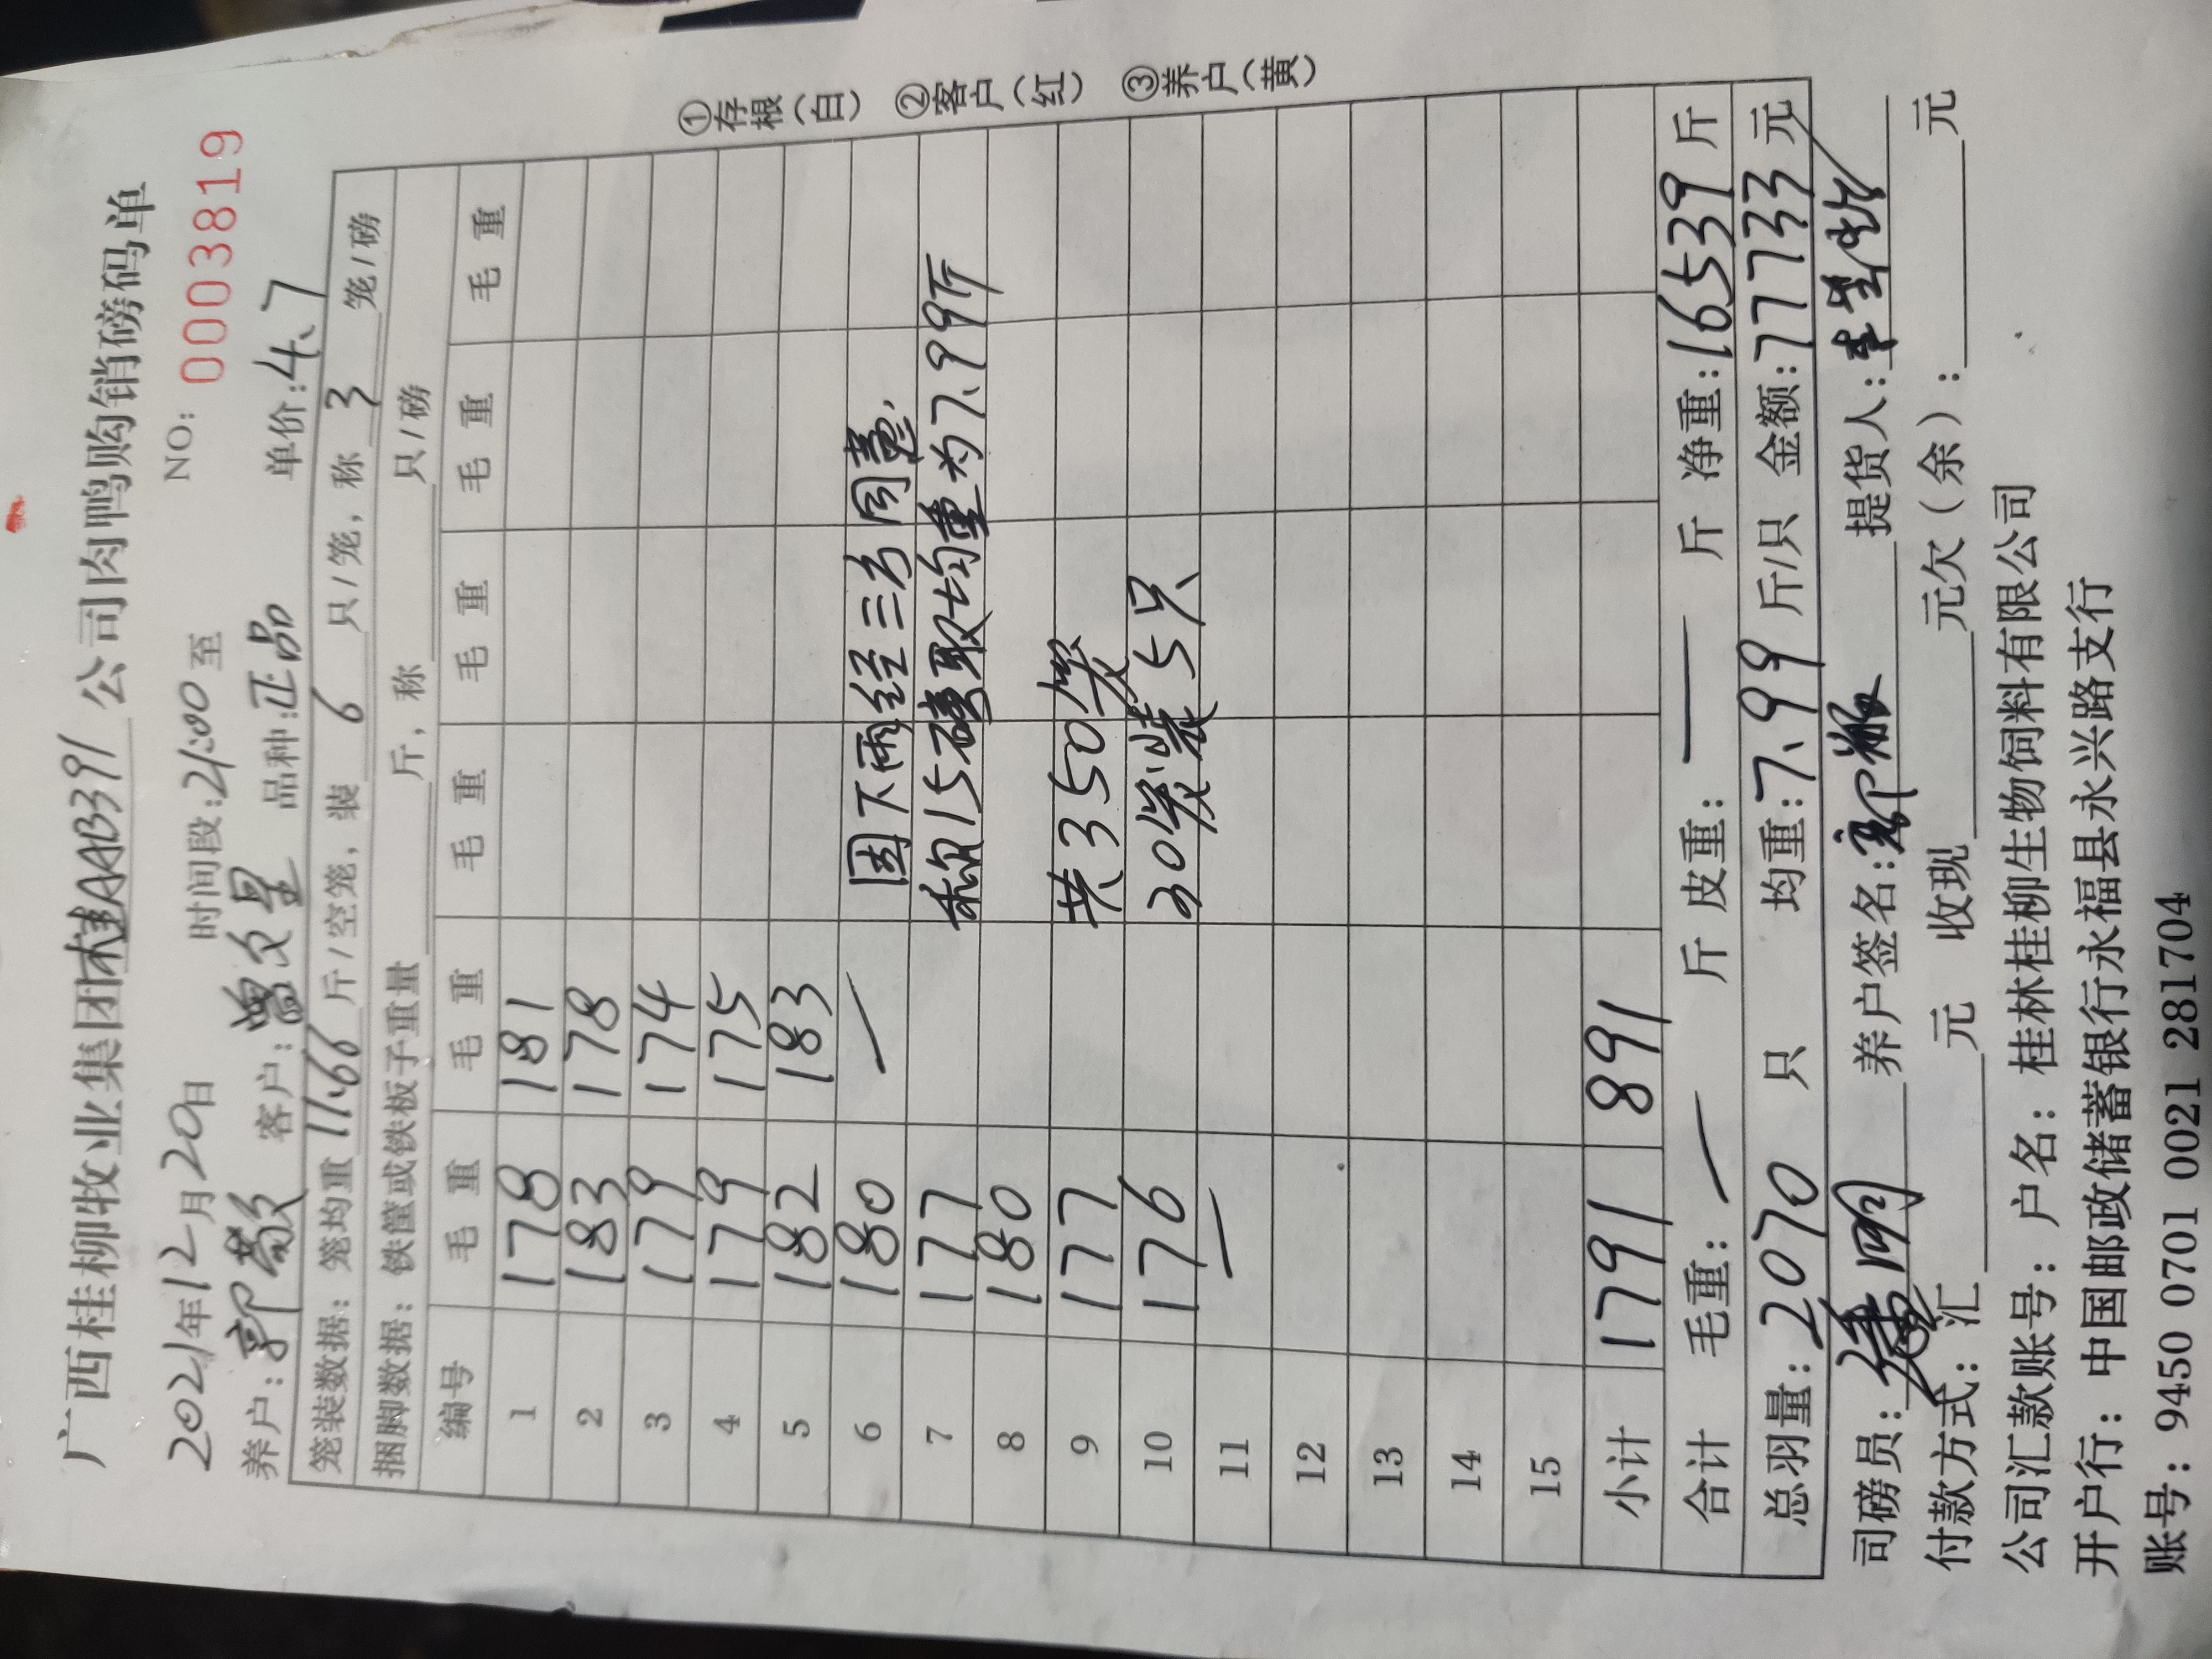 广西桂柳牧业集团桂AAB391公司肉鸭购销磅码单
2021年12月20日 时间段:21:00至 NO: 0003819
养户: 郭敬 客户: 曾文星 品种:正品 单价:4.7
笼装数据: 笼均重 11.66 斤/空笼, 装 6 只/笼, 称 3 笼/磅
捆脚数据: 铁筐或铁板子重量 斤, 称 只/磅
编号 毛重 毛重 毛重 毛重 毛重 毛重
1 178 181
2 183 178
3 179 174
4 179 175
5 182 183
6 180 — 因下雨经三方同意,
7 177 称15磅取均重为7.99斤
8 180
9 177 共350笼
10 176 30笼装5只
11 —
12
13
14
15
小计 1791 891
合计 毛重: — 斤 皮重: — 斤 净重: 16539 斤
总羽量: 2070 只 均重: 7.99 斤/只 金额: 77733 元
司磅员: 养户签名: 郭敬 提货人:
付款方式: 汇 元 收现 元欠(余): 元
公司汇款账号: 户名: 桂林桂柳生物饲料有限公司
开户行: 中国邮政储蓄银行永福县永兴路支行
账号: 9450 0701 0021 281704
①存根(白) ②客户(红) ③养户(黄)